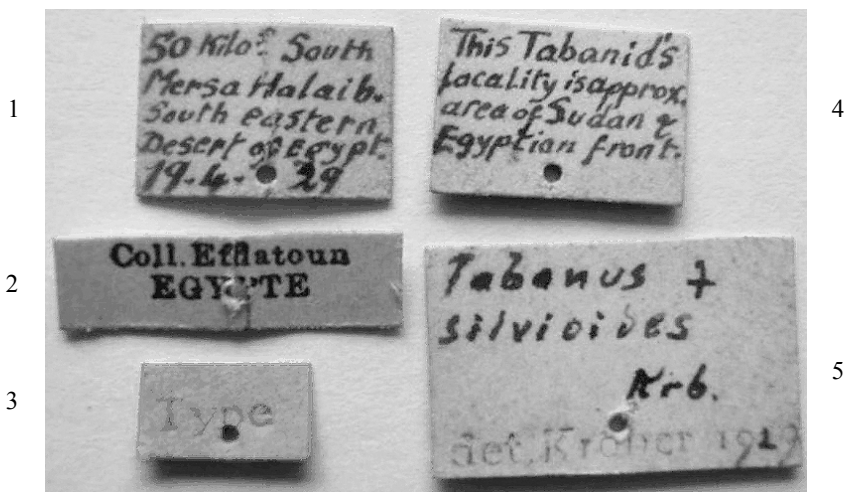 1
50 Kilo? South
Mersa Halaib.
South eastern
Desert of Egypt.
19-4- 29
2
Coll. Efflatoun
EGYPTE
3
Type
4
This Tabanid's
locality is approx.
area of Sudan &
Egyptian front.
5
Tabanus ♀
silvioides
Krb.
det. Kröber 1929